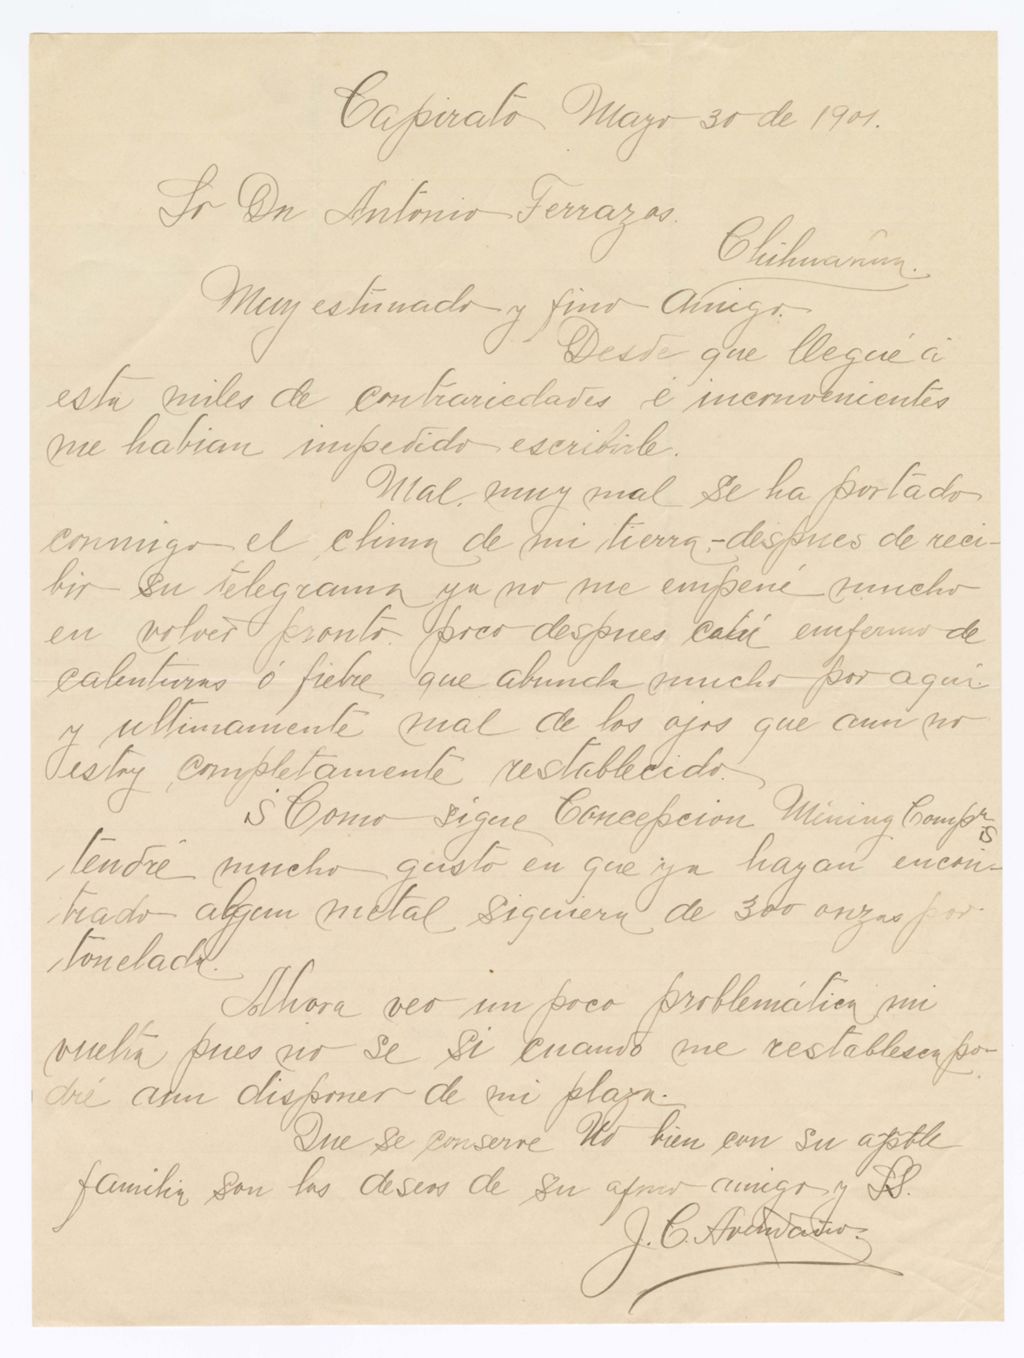 Capirato Mayo 30 de 1901.
Sr Dn Antonio Terrazas.
Chihuahua.
Muy estimado y fino amigo.
Desde que llegué á
esta miles de contrariedades é inconvenientes
me habian impedido escribirle.
Mal, muy mal se ha portado
conmigo el clima de mi tierra,-despues de reci-
bir su telegrama ya no me empené mucho
en volver pronto. poco despues caí emfermo de
calenturas ó fiebre que abunda mucho por aqui.
y ultimamente mal de los ojos que aun no
estoy completamente restablecido.
¿Como sigue Concepcion Mining Comp
tendré mucho gusto en que ya hayan encon-
trado algun metal siquiera de 300 onzas por
tonelada.
Ahora veo un poco problemática mi
vuelta pues no se si cuando me restablesca po-
dré aun disponer de mi plaza.
Que se conserve Ud bien con su apble
familia son los deseos de su afmo amigo y SS.
J. C. Avendaño.